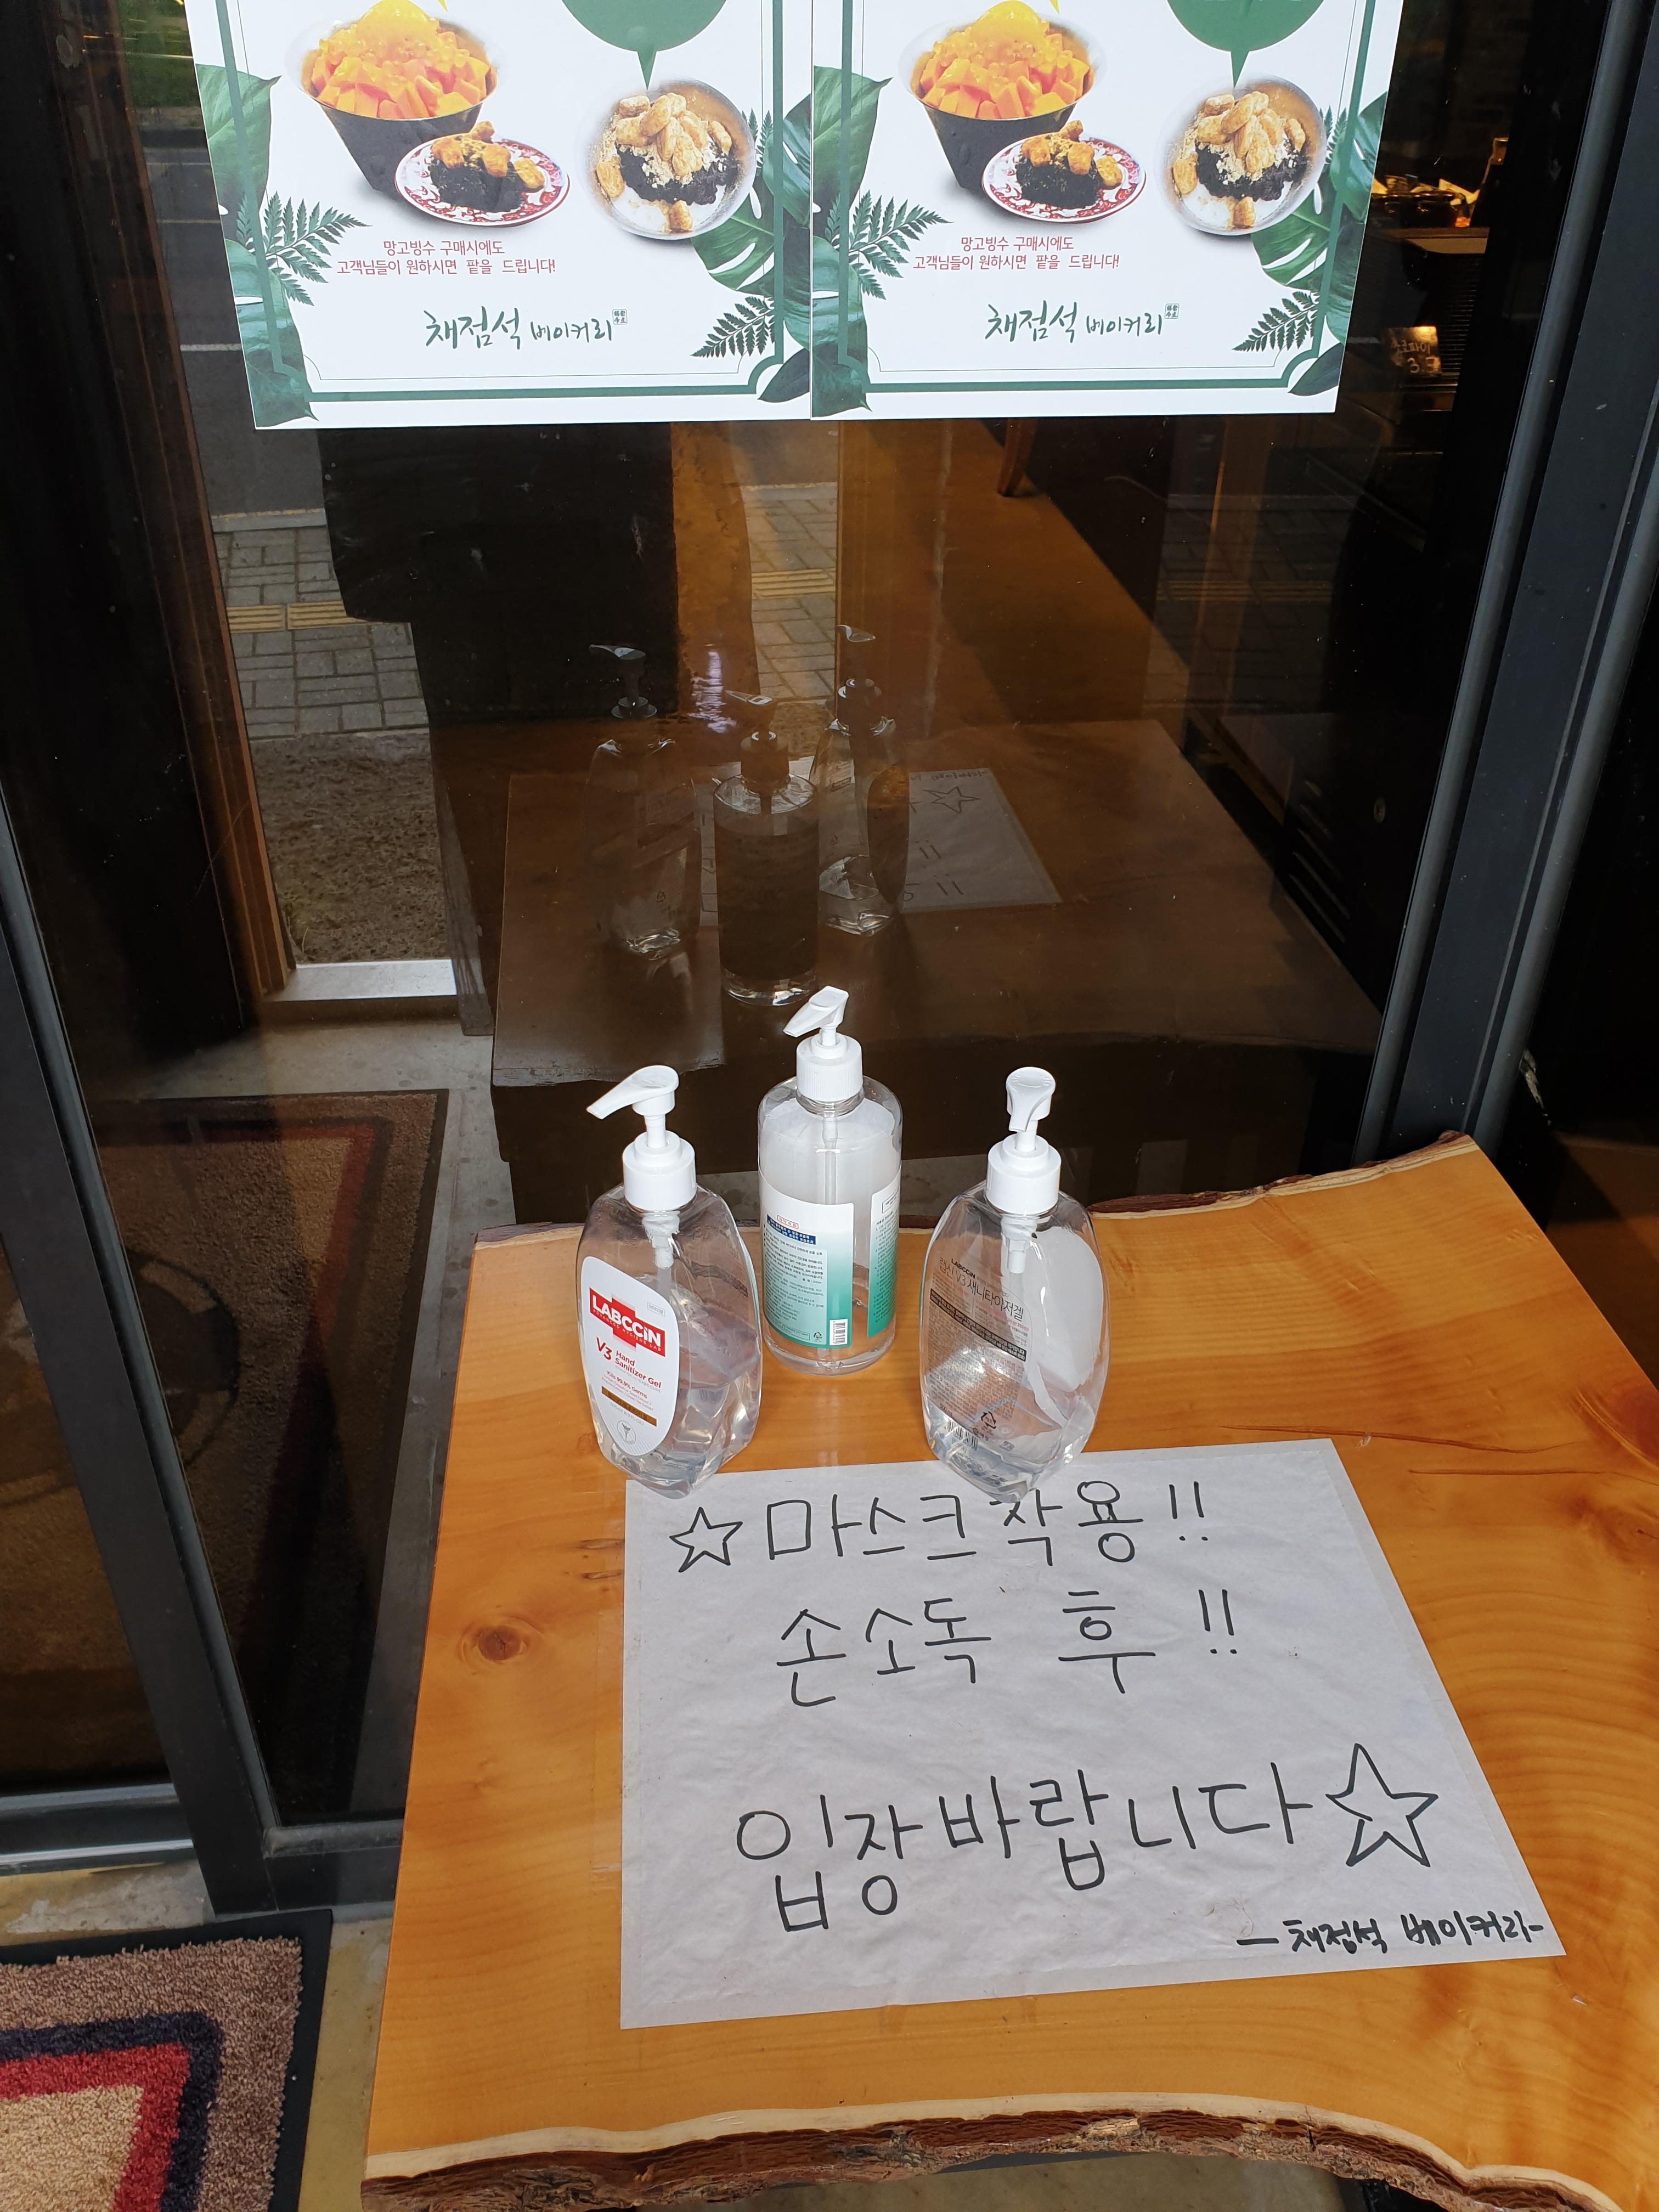 망고빙수 구매시에도
고객님들이 원하시면 팥을 드립니다!
채점석 베이커리
망고빙수 구매시에도
고객님들이 원하시면 팥을 드립니다!
채점석 베이커리
LABCCiN
V3 Hand
Sanitizer Gel
Kills 99.9% Germs
LABCCiN
랩신 V3 새니타이저겔
☆마스크착용!!
손소독 후 !!
입장바랍니다☆
- 채점석 베이커리-